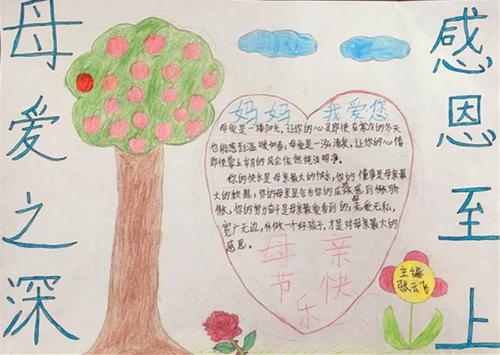 母爱之深
感恩至上
妈妈 我爱您
母爱是一缕阳光，让你的心灵即使在寒冷的冬天
也能感到温暖如春；母爱是一泓清泉，让你的心情
即使蒙上岁月的风尘依然纯洁明净。
你的快乐是母亲最大的快乐，你的懂事是母亲最
大的欣慰，你的母亲是在为你的成绩感到骄傲
你的努力向子是母亲最爱看到的；关爱无私，
宽广无边，做一个好孩子，才是对母亲最大的
感恩。
母亲
节快
乐
主编
张云飞